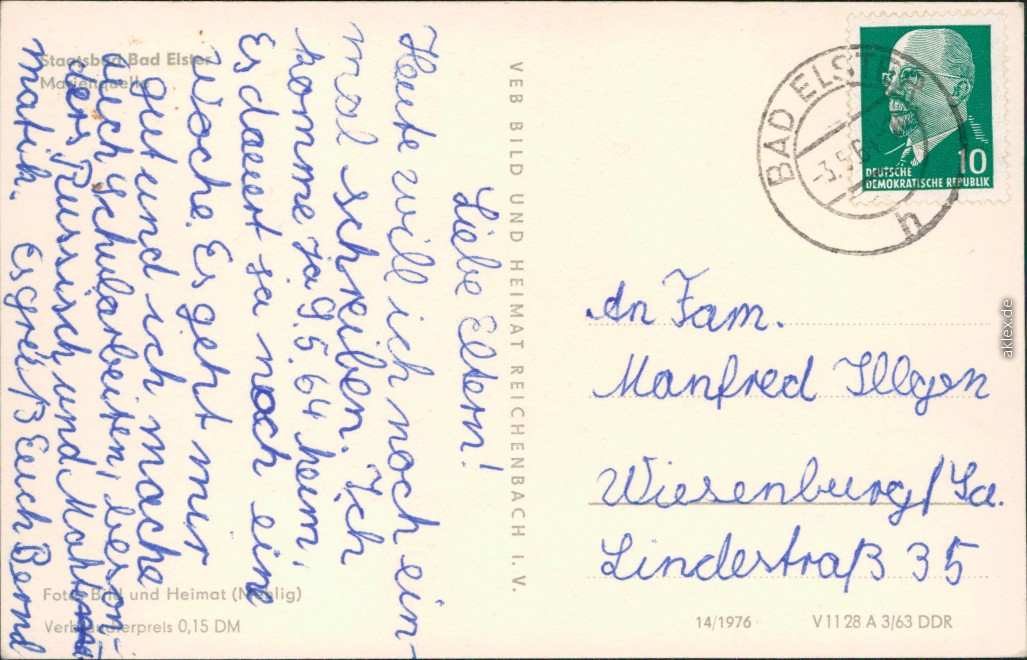 Staatsbad Bad Elster
Marienquelle
Liebe Eltern!
Heute will ich noch ein-
mal schreiben. Ich
komme ja 9.5.64 heim,
Es dauert ja noch eine
Woche. Es geht mir
gut und ich mache
auch Schularbeiten, beson-
ders Russisch und Mathe
matik. Es grüßt Euch Bernd
Foto: Bild und Heimat
Verbraucherpreis 0,15 DM
VEB BILD UND HEIMAT REICHENBACH I. V.
BAD ELSTER
h
10
DEUTSCHE
DEMOKRATISCHE REPUBLIK
An Fam.
Manfred Illgen
Wiesenburg/Sa.
Lindestraß 35
14/1976 V 11 28 A 3/63 DDR
aklex.de